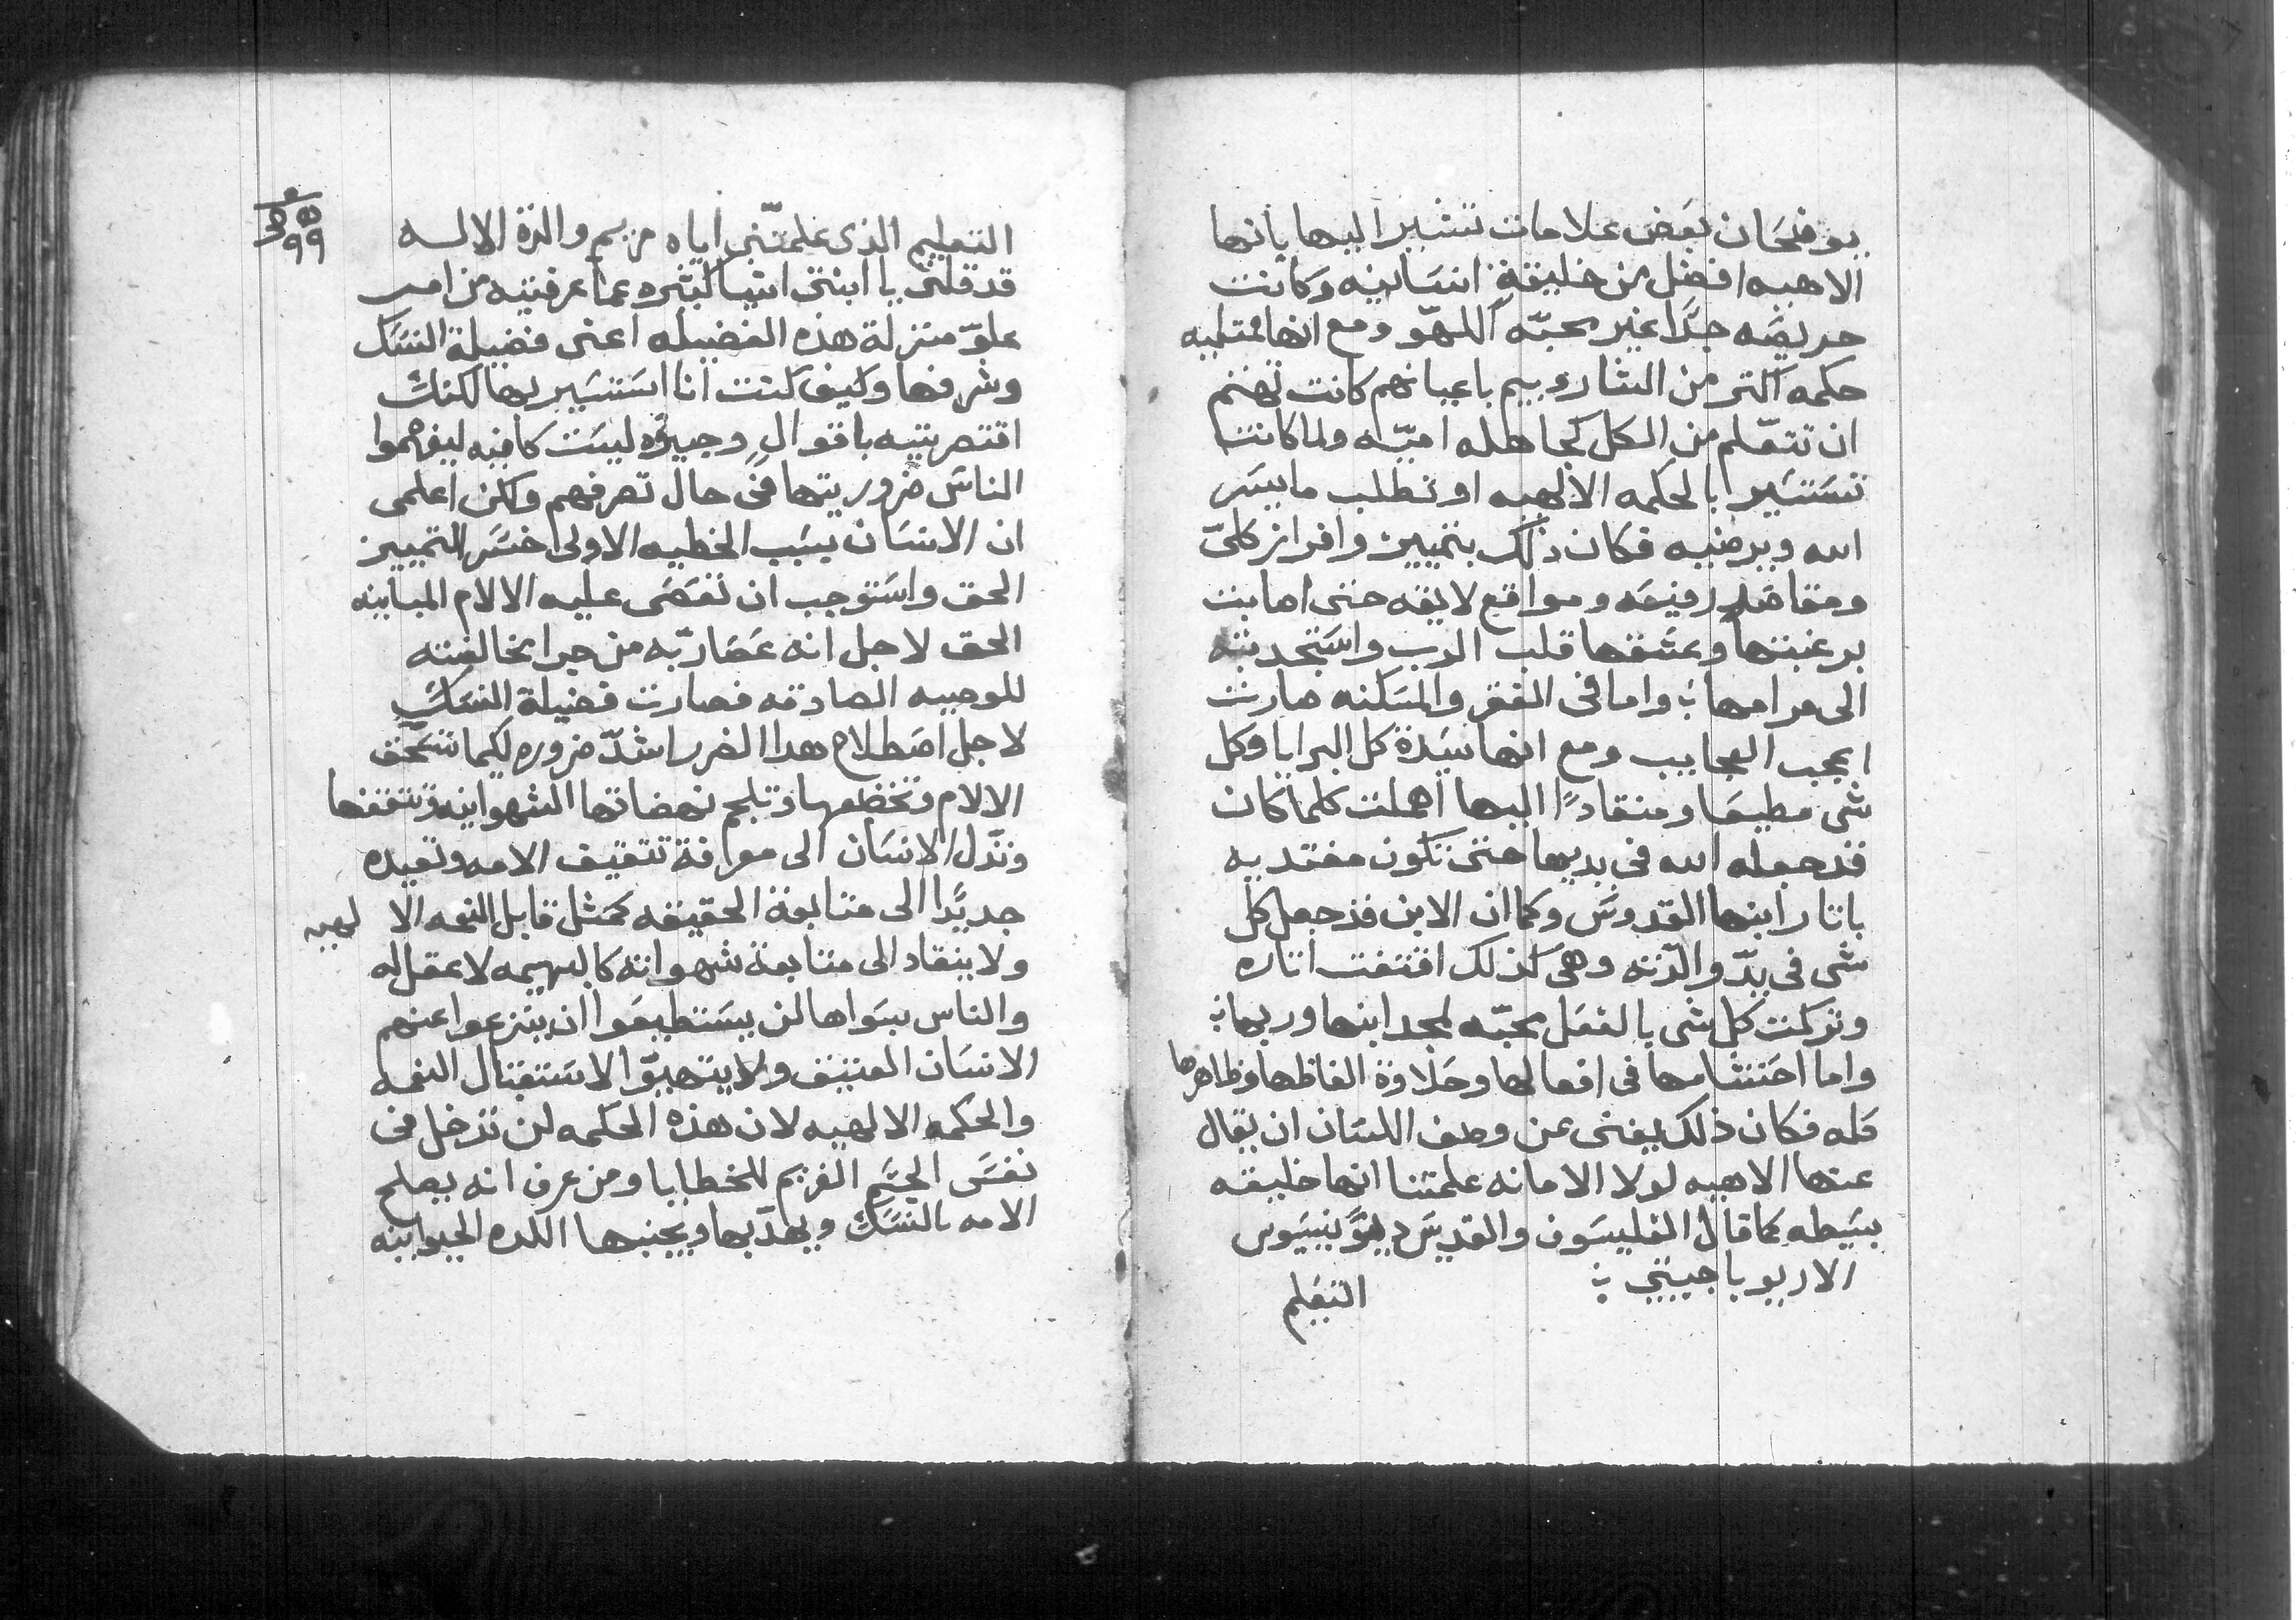 يوضحان بعض علامات تشير اليها بانها
الاهيه افضل من خليقة انسانيه وكانت
حريصه جدًا غير محبّه اللهوّ ومع انها ممتليه
حكمه اكثر من الشاروبيم باعيانهم كانت تهتم
ان تتعّلم من الكل كجاهله اميّه ولما كانت
تستسير بالحكمه الالهيه او تطلب ما يسر
الله ويرضيه فكان ذلك بتمييز وافراز كليّ
ومقاصد رفيعه ومواقع لايقه حتى اصابت
برغبتها وعشقها قلب الرب واستجدبته
الى مرامها واما فى الفقر والمسكنه صارت
اعجب العجايب ومع انها سيدة كل البرايا وكل
شى مطيعا ومنقادًا اليها اهملت كلما كان
قد جعله الله فى يديها حتى تكون مقتديه
باتار ابنها القدوس وكما ان الابن قد جعل كل
شى فى يدّ والدته وهى كذلك اقتفت اتاره
وتركت كل شى بالفعل محبّه لمجد ابنها وربها
واما احتشامها فى افعالها وحلاوة الفاظها وظاهرها
كله فكان ذلك يغنى عن وصف اللسان ان يقال
عنها الاهيه لولا الامانه علمتنا انها خليقه
بسيطه كما قال الفليسوف والقديس ديونيسيوس
الاريوباجيتي
التعليم
٩٩
التعليم الذى علمتّنى اياه مريم والدة الاله
قد قلتى يا ابنتى اشيا كثيره عما عرفتيه من امر
علوّ منزلة هذه الفضيله اعنى فضيلة النسك
وشرفها وكيف كنت انا استسير بها لكنك
اقتصرتيه باقوالٍ وجيزه ليست كافيه ليفهموا
الناس ضروريتها فى حال تصرفهم ولكن اعلمى
ان الانسان بسبب الخطيه الاولى خسر التمييز
الحق واستوجب ان تعصى عليه الالام المباينه
الحق لاجل انه عصا ربّه من جرا مخالفته
للوصيه الصادقه فصارت فضيلة النسك
لاجل اصطلاح هدا الضرر اشدّ ضروره لكيما تنسحق
الالام وتخضعها وتلجم نهضاتها الشهوانيه وتتقفها
وتدّل الانسان الى معرفة تتقيف الامه وتعيده
جديدًا الى متابعة الحقيقه كمثل قابل النعمه الالهيه
ولا ينقاد الى متابعة شهواته كالبهيمه لا عقل له
والناس بسواها لن يستطيعوا ان ينزعوا عنهم
الانسان العتيق ولا يتهيوّا لاستقبال النعمه
والحكمه الالهيه لان هذه الحكمه لن تدخل فى
نفس الجسم الغريم للخطايا ومن عرف انه يصلح
الامه بالنسك ويهدّبها ويجنبها اللده الحيوانيه